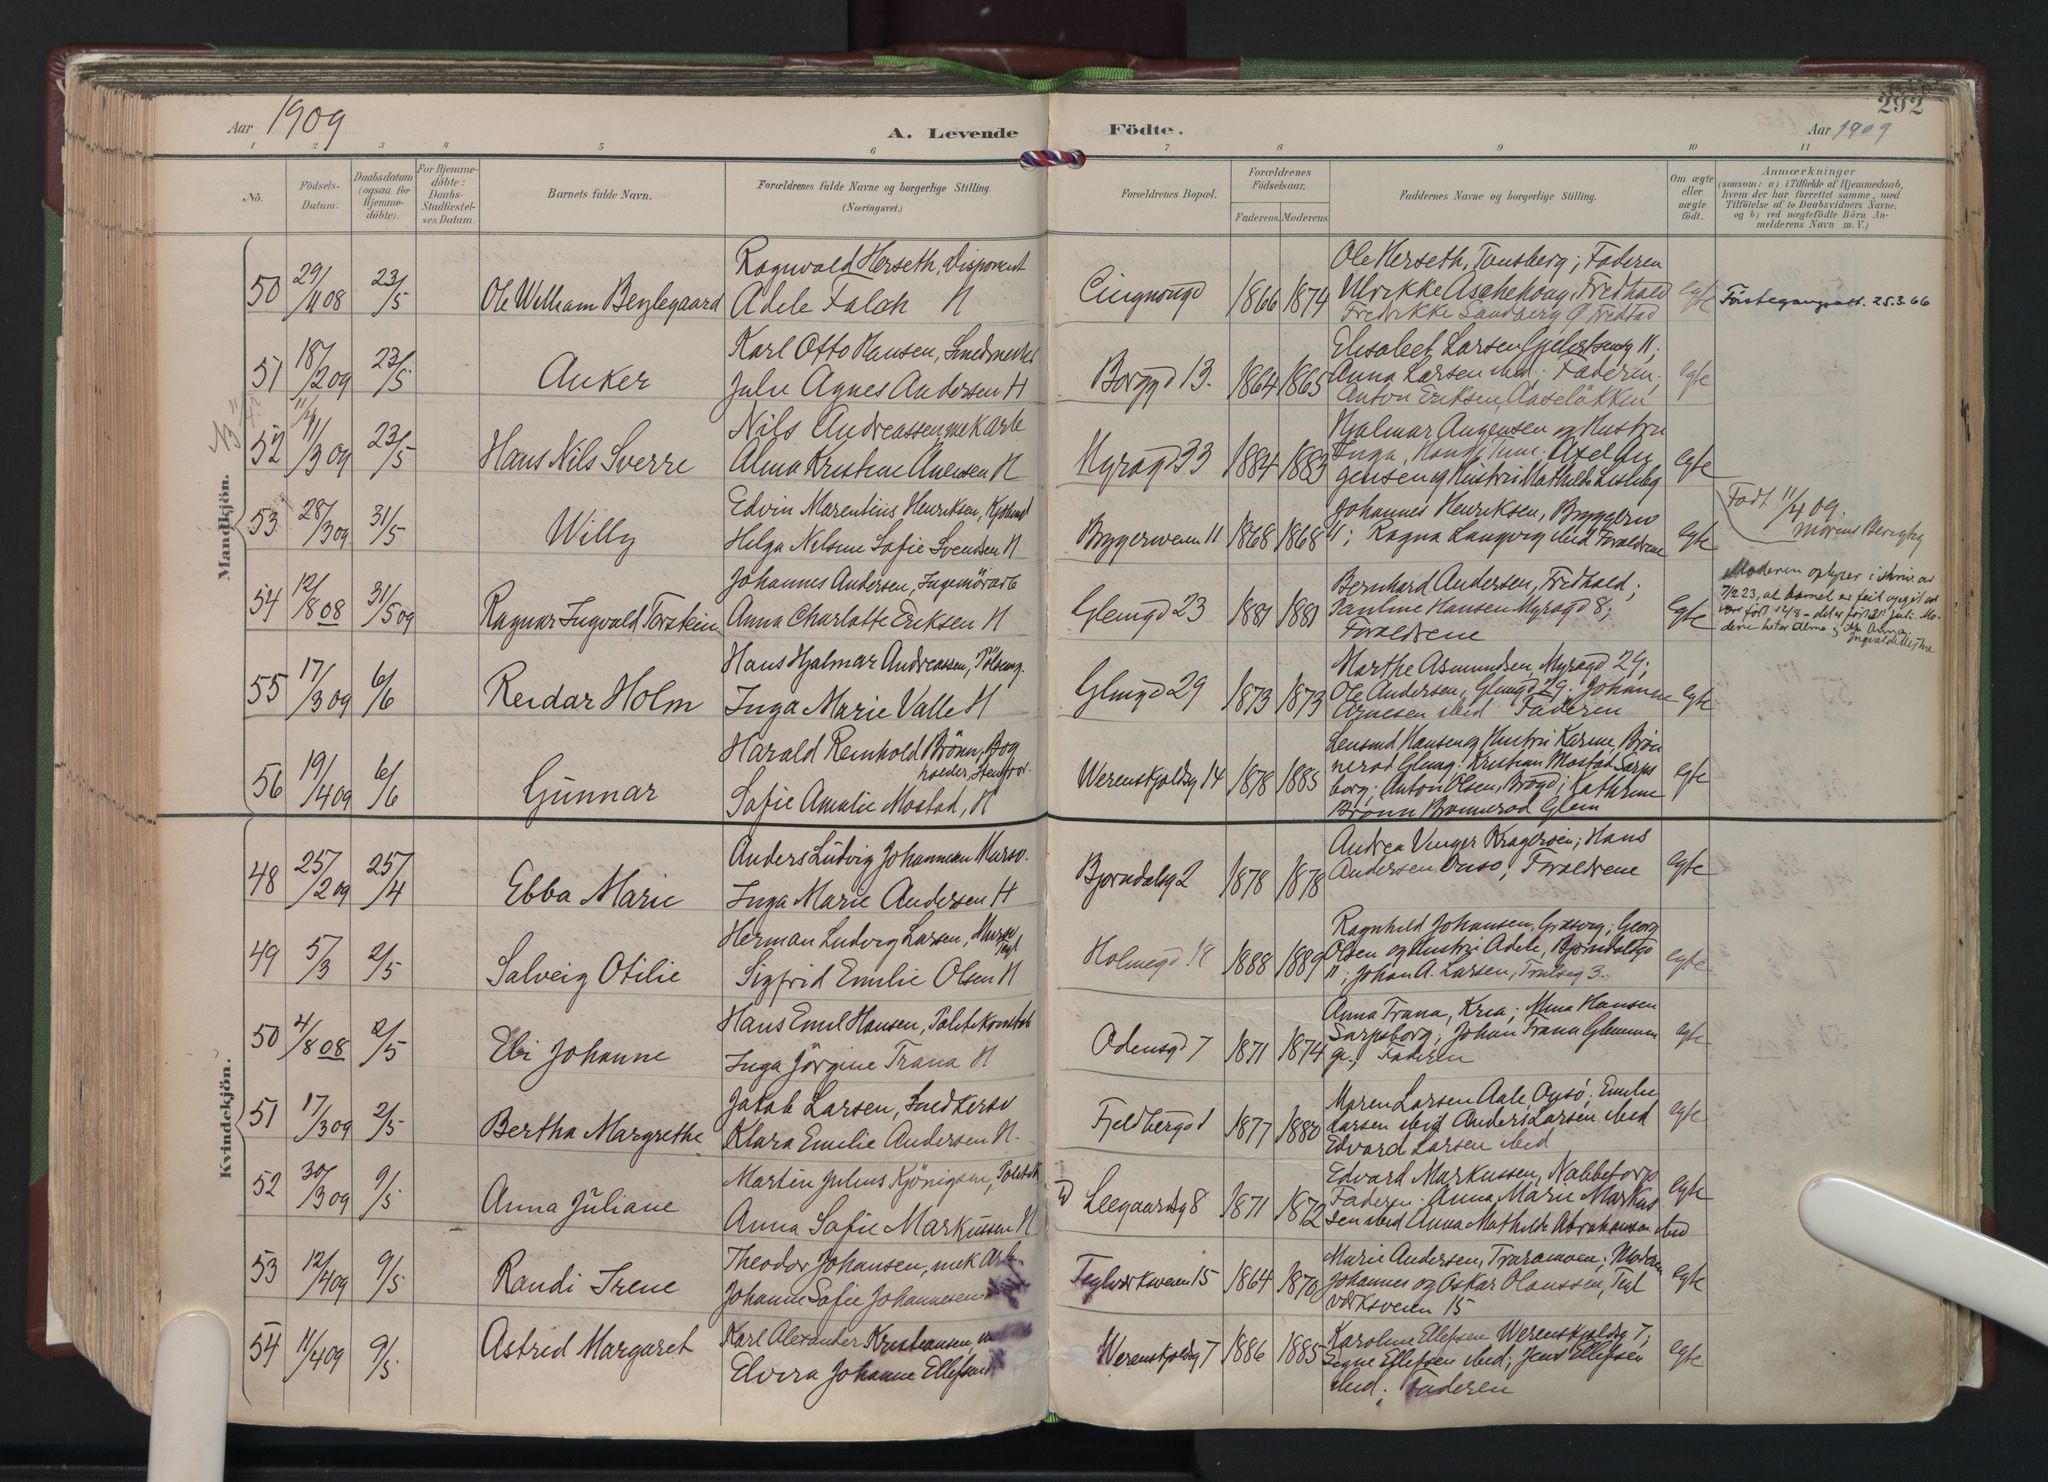 Aar 1909
A. Levende
Födte.
292
Aar 1909
1 2 3 4 5 6 7 8 9 10 11
No.
Födsels-
Datum.
Daabsdatum
(ogsaa for
Hjemme-
döbte).
For Hjemme-
döbte:
Daabs-
Stadfæstel-
ses Datum.
Barnets fulde Navn.
Forældrenes fulde Navne og borgerlige Stilling.
(Næringsvei.)
Forældrenes Bopæl.
Forældrenes
Födselsaar.
Faderens. Moderens.
Faddernes Navne og borgerlige Stilling.
Om ægte
eller
uægte
födt.
Anmærkninger
(saasom: a) i Tilfælde af Hjemmedaab,
hvem der har forrettet samme, med
Tilföielse af to Daabsvidners Navne.
og b) ved uægtefödte Börn An-
melderens Navn m. V.)
Mandkjön.
50 29/11 08 23/5 Ole William
Ragnvald Herseth, Disponent
Adele Falch H
1866 1874
Ole Herseth, Tønsberg; Faderen
Ulrikke Aschehoug, Fredhald
Fredrikke Sandberg
Egte
25.3.66
51 18/2 09 23/5 Anker
Karl Otto Hansen, Smedmester
Julie Agnes Andersen H
Borggd 13. 1864 1865
Elisabet Larsen
Anna Larsen ibid; Faderen;
Anton Eriksen,
Egte
52 11/3 09 23/5 Hans Nils Sverre
Nils Andreassen, mek arb
Alma Kristine H
Myragd 33 1884 1883
Hjalmar og Hustru
Inga,
og Hustru Mathilde
Egte
53 28/3 09 31/5 Willy
Edvin Marentius Henriksen,
Helga Nilsine Sofie Svendsen H
Bryggerveien 11 1868 1868
Johannes Henriksen, Bryggeriv
11; Ragna Langvig ibid Forældrene
Egte
Født 11/4 09.
54 12/8 08 31/5 09 Ragnar Ingvald Torstein
Johannes Andersen,
Anna Charlotte Eriksen H
Glemgd 23 1881 1881
Bernhard Andersen, Fredhald;
Pauline Hansen Myragd 8;
Forældrene
Egte
Moderen oplyser i skriv. av
7/2 23, at barnet er feil opgit at
være født 12/8 - det er født 21 juli. Mo-
deren heter Alma
55 17/3 09 6/6 Reidar Holm
Hans Hjalmar Andreassen, Pølsemg.
Inga Marie Valle H
Glemgd 29 1873 1873
Marthe Asmundsen, Myragd 29;
Ole Andersen, Glemgd 29. Johanne
Arnesen ibid Faderen
Egte
56 19/4 09 6/6 Gunnar
Harald Reinhold Brönn, Bog
Sofie Amalie Mostad, H
Werenskjoldsg 14 1878 1885
Hansen og Hustru Karine, Brøn
nerød Glemg. Kristian Mostad Sarps
borg; Anton Olsen, Kathrine
Brønn Brønnerød Glem
Egte
Kvindekjön.
48 25/2 09 25/4 Ebba Marie
Anders Ludvig Johannesen Mursv.
Inga Marie Andersen H
Bjørndalsg 2 1878 1878
Andrea Unger Kragerøen; Hans
Andersen Onsø; Forældrene
Egte
49 5/3 2/5 Solveig Otilie
Herman Ludvig Larsen, Mursv
Sigfrid Emilie Olsen H
Holmegd 18 1888 1889
Ragnhild Johansen, Georg
Olsen og Hustru Adele, Bjørndalsg
11; Johan A. Larsen, Trulseg 3.
Egte
50 4/8 08 2/5 Johanne
Hans Emil Hansen, Politikonstab
Inga Jörgine Trana H
Odensgd 7 1871 1874
Anna Trana, Kria; Mina Hansen
Sarpsborg; Johan Trana Glemmen
ge; Faderen
Egte
51 17/3 09 2/5 Bertha Margrethe
Jakob Larsen, Snedkersv
Klara Emilie Andersen H.
Fjeldbergd 1 1877 1880
Maren Larsen Aale, Onsö; Emilie
Larsen ibid Anders Larsen ibid
Edvard Larsen ibid
Egte
52 30/3 09 9/5 Anna Juliane
Martin Julius Kjönigsen,
Anna Sofie Markussen H
Leegaardsg 8 1871 1872
Edvard Markussen, Nabbetorp
Faderen. Anna Marie Markus
sen ibid Anna Mathilde Abrahamsen ibid
Egte
53 12/4 09 9/5 Randi Irene
Theodor Johansen, mek Arb.
Johanne Sofie Johannesen
Teglverksveien 15 1864 1870
Marie Andersen, Moderen
Johannes og Oskar Olaussen, Tegl
verksveien 15
Egte
54 11/4 09 9/5 Astrid Margaret
Karl Alexander Kristiansen,
Elvira Johanne Ellefsen
Werenskjoldsg 7 1886 1885
Karoline Ellefsen Werenskjoldsg 7;
Signe Ellefsen ibid; Jens Ellefsen
ibid; Faderen
Egte